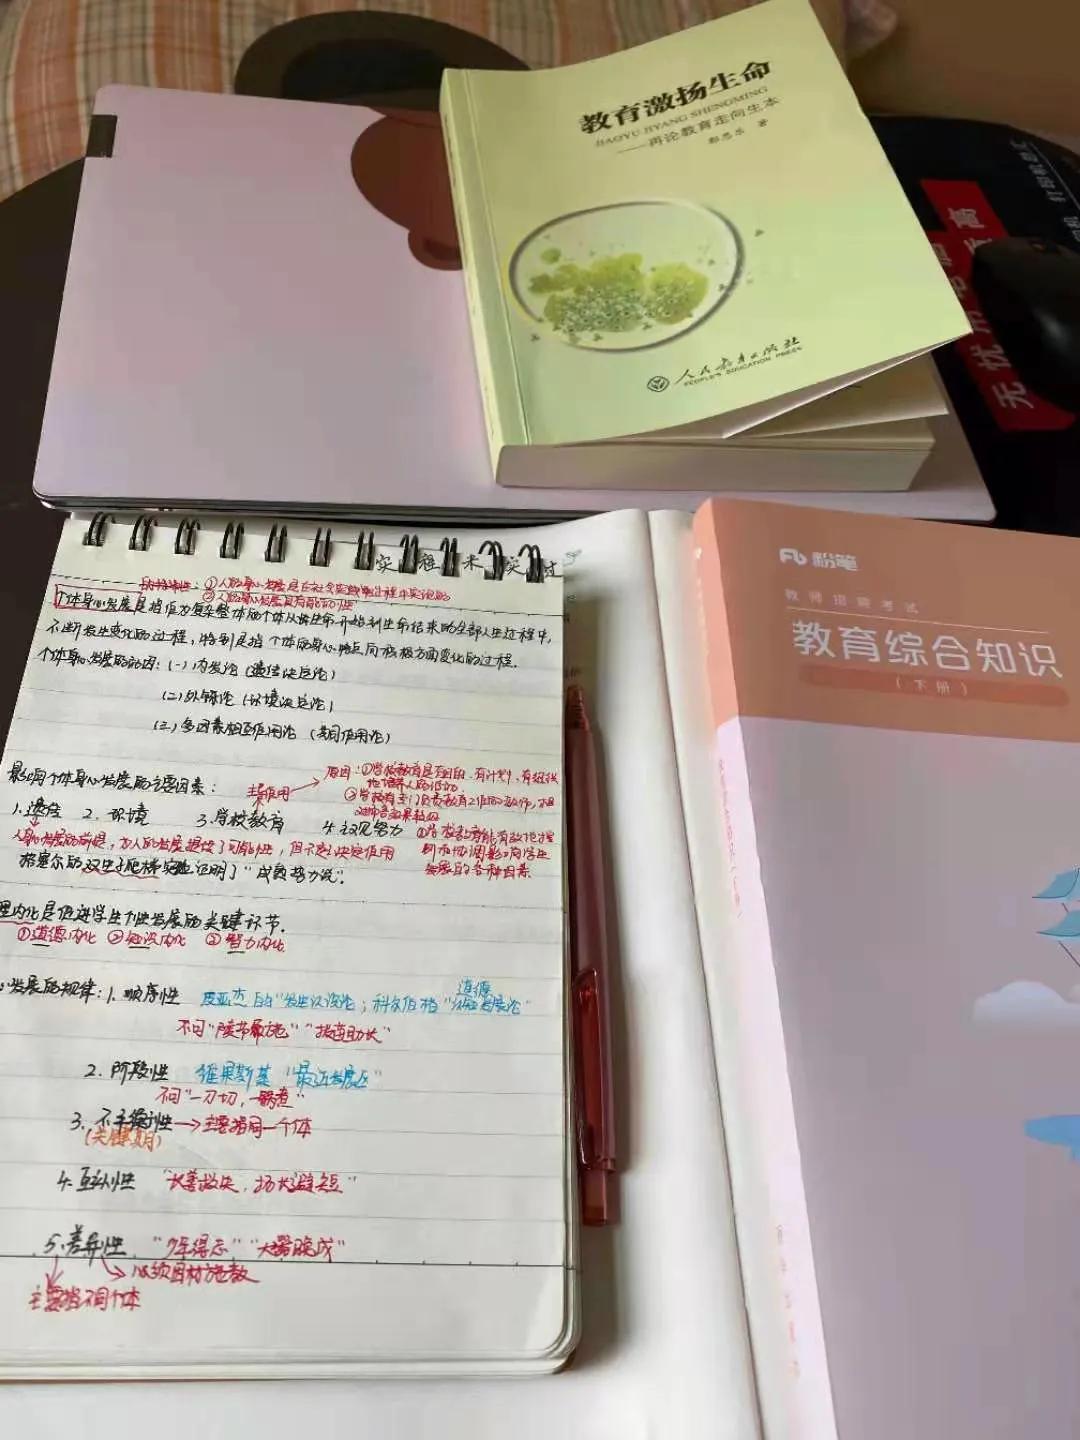 教育激扬生命
JIAOYU JIYANG SHENGMING
——再论教育走向生本
郭思乐 著
人民教育出版社
PEOPLE'S EDUCATION PRESS
无忧
粉笔
教师招聘考试
教育综合知识
(下册)
①人的身心发展是在社会实践过程中实现的
②人的身心发展具有能动性
个体身心发展是指作为复杂整体的个体从生命开始到生命结束的全部人生过程中,
不断发生变化的过程,特别是指个体的身心特点向积极方面变化的过程.
个体身心发展的动因:(一)内发论(遗传决定论)
(二)外铄论(环境决定论)
(三)多因素相互作用论(共同作用论)
影响个体身心发展的主要因素:
主导作用
原因:①学校教育是有目的、有计划、有组织
地培养人的活动
1.遗传 2.环境 3.学校教育 4.主观努力
③学校教育能有效地控
制和协调影响学生
发展的各种因素
人身心发展的前提,为人的发展提供了可能性,但不起决定作用
格塞尔的双生子爬梯实验证明了"成熟势力说".
内化是促进学生个性发展的关键环节.
①道德内化 ②知识内化 ③智力内化
发展的规律:1.顺序性 皮亚杰的"发生认识论;科尔伯格"道德发展论"
不可"陵节而施""拔苗助长"
2.阶段性 维果斯基"最近发展区"
不可"一刀切,一锅煮"
3.不平衡性→主要指同一个体
(关键期)
4.互补性 "长善救失,扬长避短"
5.差异性 "少年得志""大器晚成"
必须因材施教
主要指不同个体